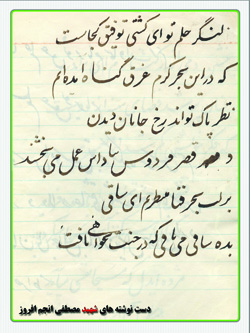 لنگر حلم تو ای کشتی توفیق کجاست
که در این بحر کرم غرق گناه آمده‌ایم
نظر پاک تواند رخ جانان دیدن
د قصر فردوس بپاداش عمل می‌بخشند
بر لب بحر فنا منتظریم ای ساقی
بده ساقی می باقی که در جنت نخواهی یافت
دست نوشته های شهید مصطفی انجم افروز